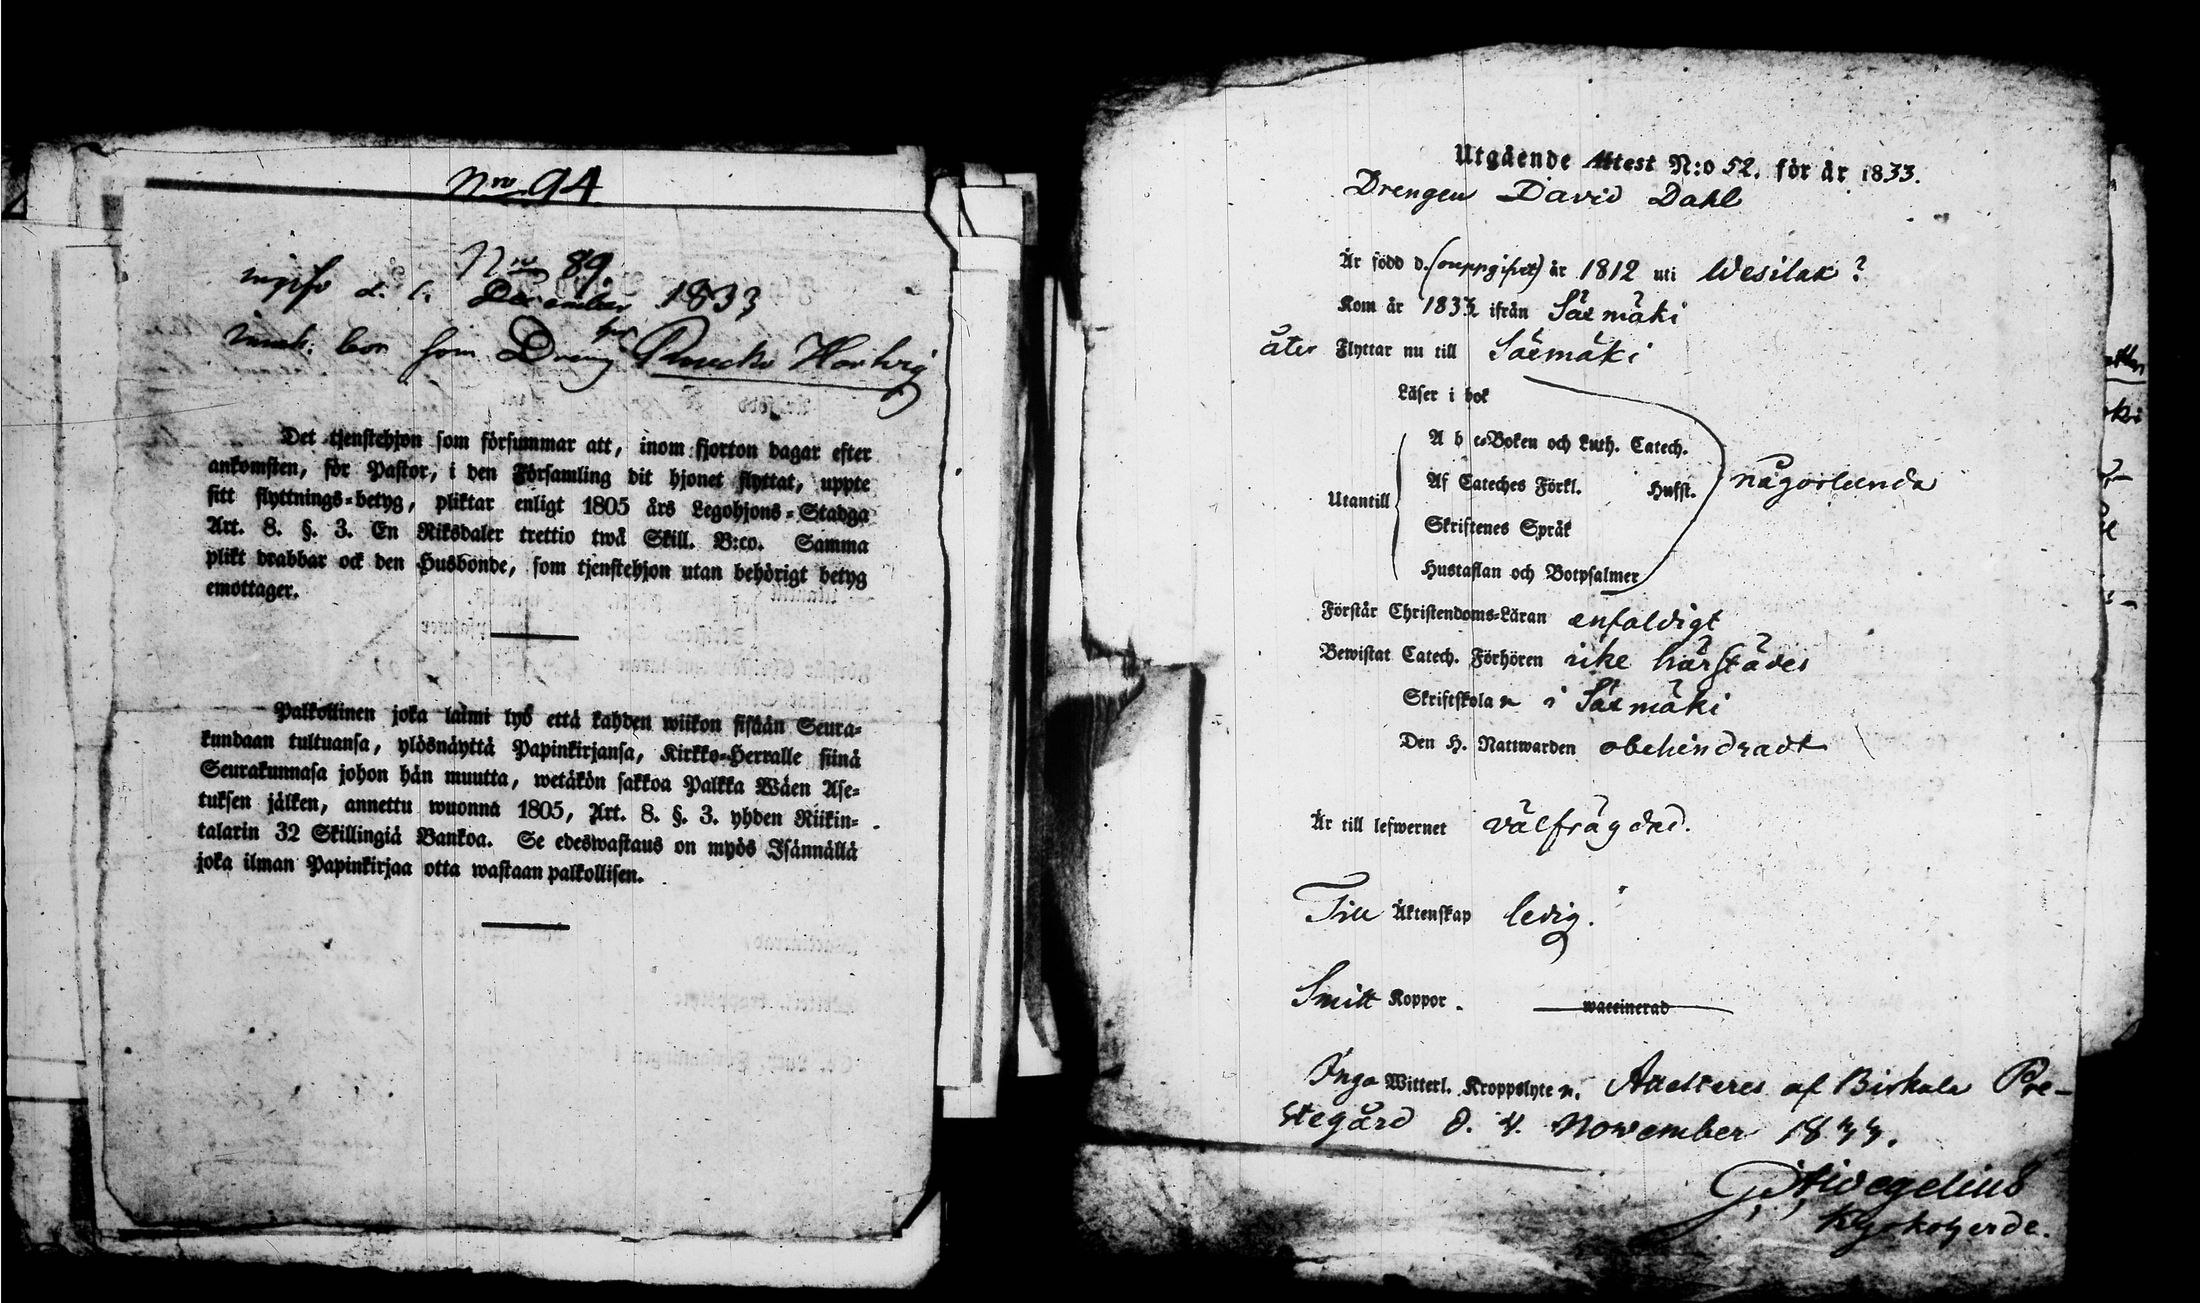 Nro 94
Nro 89.
d. 6. December 1833
som Dreng hos Hartvig
Det tjenstehjon som försummar att, inom fjorton dagar efter
ankomsten, för Pastor, i den Församling dit hjonet flyttat, uppte
sitt flyttnings-betyg, pliktar enligt 1805 års Legohjons-Stadga
Art. 8. §. 3. En Riksdaler trettio twå Skill. B:co. Samma
plikt drabbar ock den Husbonde, som tjenstehjon utan behörigt betyg
emottager.
Palkollinen joka laimi lyö että kahden wiikon sisään Seura-
kundaan tultuansa, ylösnäyttä Papinkirjansa, Kirkko-Herralle siinä
Seurakunnasa johon hän muutta, wetäkön sakkoa Palkka Wäen Ase-
tuksen jälken, annettu wuonna 1805, Art. 8. §. 3. yhden Riikin-
talarin 32 Skillingiä Bankoa. Se edeswastaus on myös Isännällä
joka ilman Papinkirjaa otta wastaan palkollisen.
Utgående Attest N:o 52. för år 1833.
Drengen David Dahl
Är född d. (ouppgifvet) år 1812 uti Wesilax ?
Kom år 1833 ifrån Säxmäki
åter Flyttar nu till Säxmäki
Läser i bok
A b c-Boken och Luth. Catech.
Utantill Af Cateches Förkl. Hufst. någorlunda
Skriftenes Språk
Hustaflan och Botpsalmer
Förstår Christendoms-Läran enfaldigt
Bewistat Catech. Förhören icke härstädes
Skriftskolan i Säxmäki
Den H. Nattwarden obehindradt
Är till lefwernet välfrägdad.
Till Äktenskap ledig.
Smitt Koppor. waccinerad
Inga Witterl. Kroppslyten. Attesteres af Birkala Pre-
stegård d. 4. November 1833.
Kyrkoherde.